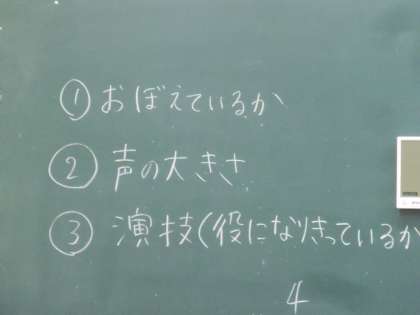 ① おぼえているか
② 声の大きさ
③ 演技(役になりきっているか
4